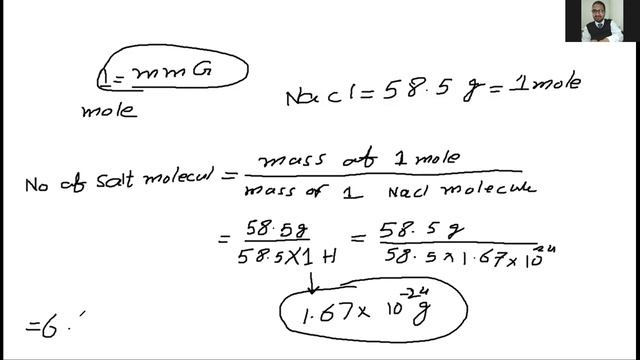 1 = mmG
mole
Nacl = 58.5 g = 1mole
No of salt molecul = mass of 1 mole / mass of 1 Nacl molecule
= 58.5g / 58.5X1 H = 58.5 g / 58.5 x 1.67 x 10^-24
1.67 x 10^-24 g
= 6.